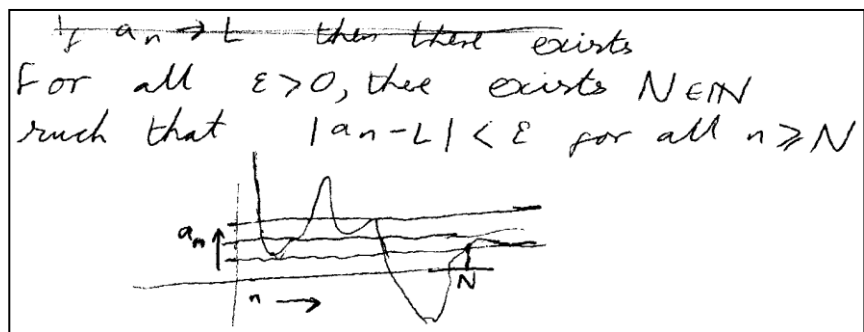 If aₙ → L then there exists
For all ε>0, thee exists N∈ℕ
such that |aₙ-L| < ε for all n ≥ N
aₙ
N
n